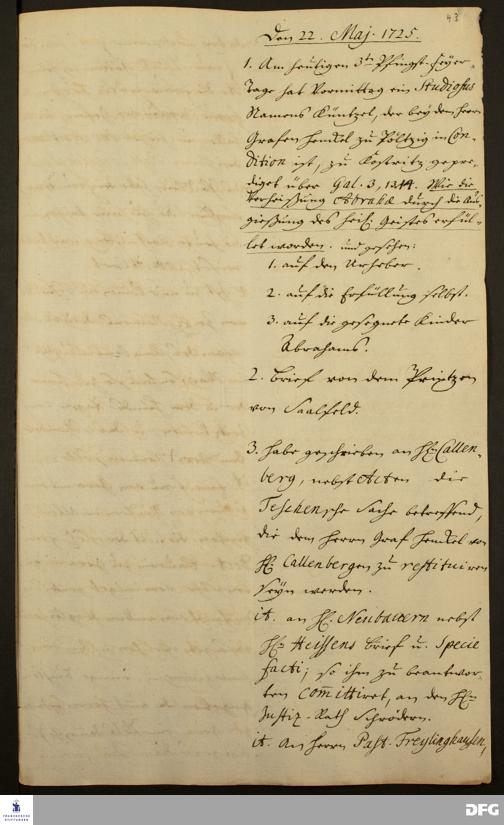 43
Den 22. Maj. 1725.
1. Am heutigen 3ten Pfingst-Feyer-
Tage hat Vormittag ein Studiosus
Namens Küntzel, der bey dem Herrn
Grafen Henckel zu Pöltzig in Con-
dition ist, zu Köstritz gepre-
diget über Gal. 3, 1314. Wie die
Verheißung Abrahä durch die Aus-
gießung des Heil. Geistes erfül-
let worden. und gesehen:
1. auf den Urheber.
2. auf die Erfüllung selbst.
3. auf die gesegnete Kinder
Abrahams.
2. Brief von dem Printzen
von Saalfeld.
3. habe geschrieben an H. Callen-
berg, nebst Acten die
Teschensche Sache betreffend,
die dem Herrn Graf Henckel von
H. Callenbergen zu restituiren
seyn werden.
it. an H. Neubauern nebst
H. Heissens Brief u. Specie
facti; so ihm zu beantwor-
ten committiret, an den H.
Justiz-Rath Schrödern.
it. An Herrn Past. Freylinghausen,
FRANCKESCHE
STIFTUNGEN
DFG